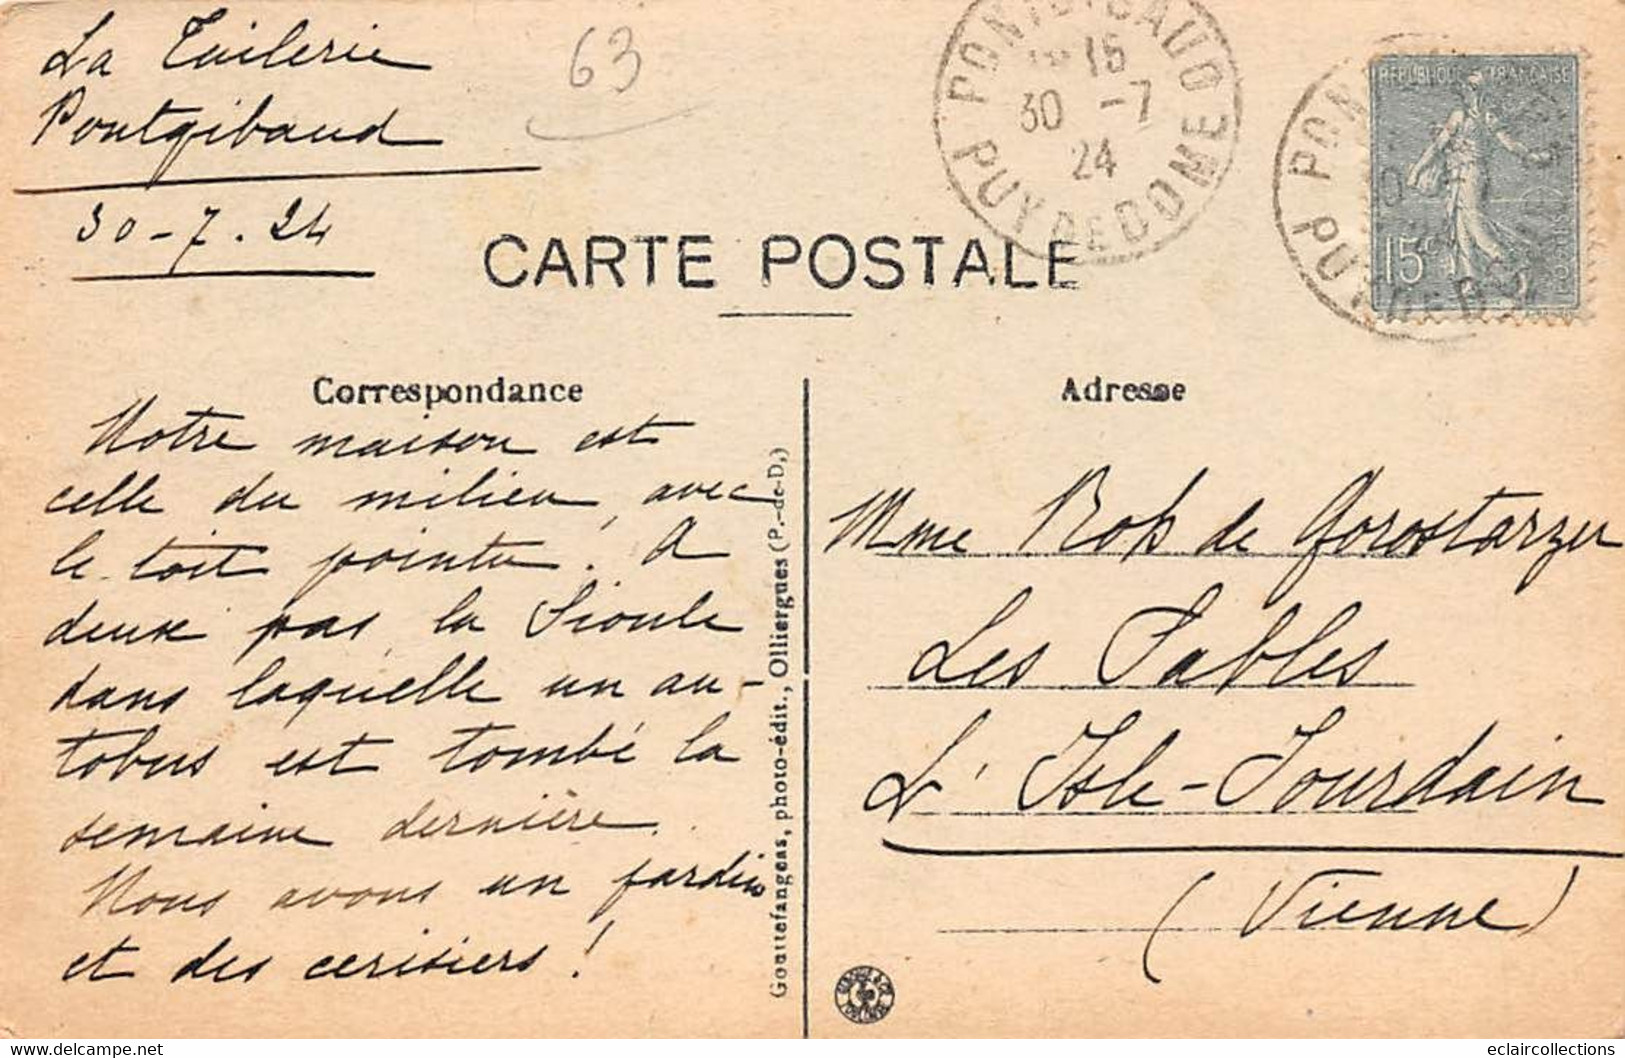 La Tuilerie
Pontgibaud
30-7.24
63
PONTGIBAUD
16
30 -7
24
PUY DE DOME
REPUBLIQUE FRANÇAISE
15c
POSTES
PUY DE DOME
CARTE POSTALE
Correspondance
Notre maison est
celle du milieu, avec
le toit pointu. A
deux pas la Sioule
dans laquelle un au-
tobus est tombé la
semaine dernière.
Nous avons un jardin
et des cerisiers !
Gouttefangeas, photo-édit., Olliergues (P.-de-D.)
Adresse
Mme de Gorostarzu
Les Sables
L'Isle-Jourdain
(Vienne)
www.delcampe.net
eclaircollections